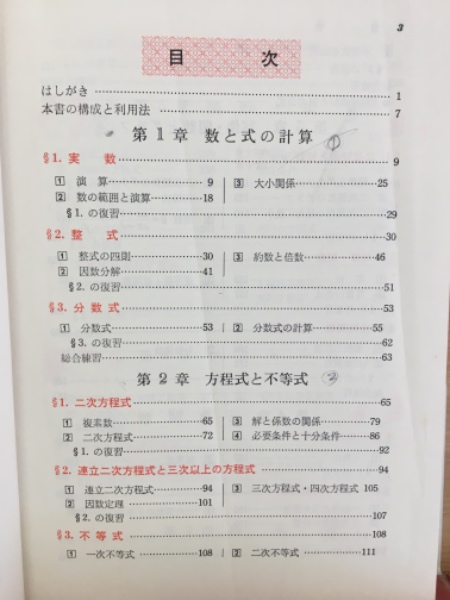 3
目 次
はしがき 1
本書の構成と利用法 7
第1章 数と式の計算 ①
§1. 実 数 9
1 演 算 9 3 大小関係 25
2 数の範囲と演算 18
§1. の復習 29
§2. 整 式 30
1 整式の四則 30 3 約数と倍数 46
2 因数分解 41
§2. の復習 51
§3. 分 数 式 53
1 分数式 53 2 分数式の計算 55
§3. の復習 62
総合練習 63
第2章 方程式と不等式 ②
§1. 二次方程式 65
1 複素数 65 3 解と係数の関係 79
2 二次方程式 72 4 必要条件と十分条件 86
§1. の復習 92
§2. 連立二次方程式と三次以上の方程式 94
1 連立二次方程式 94 3 三次方程式・四次方程式 105
2 因数定理 101
§2. の復習 107
§3. 不 等 式 108
1 一次不等式 108 2 二次不等式 111